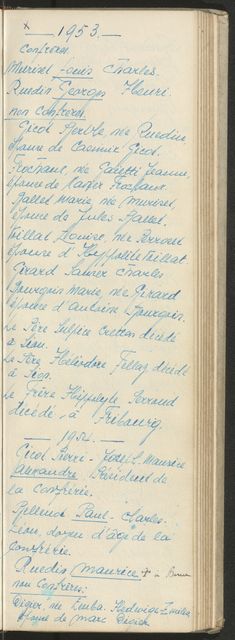 x
— 1953 —
Confrères.
Muriset Louis Charles.
Ruedin Georges Henri.
non confrères
Gicot Berthe, née Ruedin,
épouse de Casimir Gicot.
Frochaux, née Jeanne,
épouse de Frochaux.
Gallet Marie, née Muriset
épouse de Jules Gallet.
Veillat Louise, née Perroset
épouse d'Hyppolite Veillat.
Girard Xavier Charles
Bourgoin Marie, née Girard
épouse d'Antoine Bourgoin.
Le Père Sulpice Cretton décédé
à Sion.
Le Père Héliodore Fellay décédé
à Sion.
Le Frère Hippolyte Perroud
décédé, à Fribourg.
— 1954. —
Gicot Pierre - Maurice
Alexandre, Président de
la Confrérie.
Pellenod Paul - Charles.
Léon, doyen d'âge de la
Confrérie.
Ruedin Maurice + à
non Confrères:
Digier, née Hedwige Emilie
épouse de Marc Digier